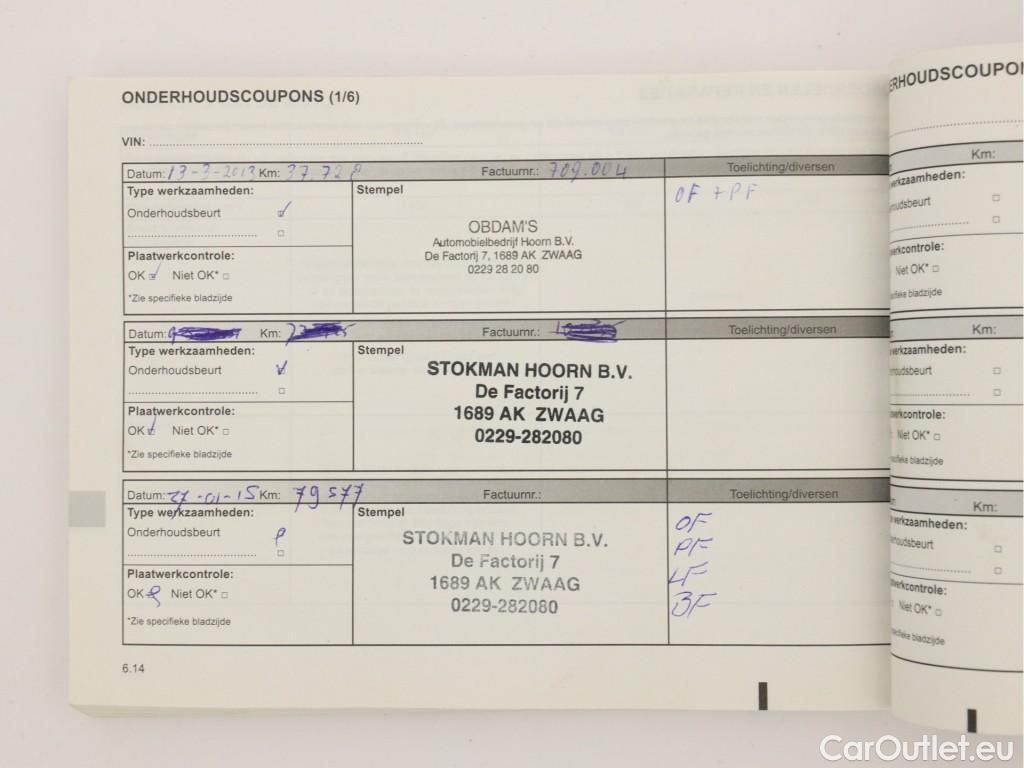 ONDERHOUDSCOUPONS (1/6)
VIN:
Datum: 13-3-2013 Km: 37.728 Factuurnr.: 709.004 Toelichting/diversen
Type werkzaamheden: Stempel OF + PF
Onderhoudsbeurt
OBDAM'S
Automobielbedrijf Hoorn B.V.
De Factorij 7, 1689 AK ZWAAG
0229 28 20 80
Plaatwerkcontrole:
OK Niet OK*
*Zie specifieke bladzijde
Datum: Km: Factuurnr.: Toelichting/diversen
Type werkzaamheden: Stempel
Onderhoudsbeurt
STOKMAN HOORN B.V.
De Factorij 7
1689 AK ZWAAG
0229-282080
Plaatwerkcontrole:
OK Niet OK*
*Zie specifieke bladzijde
Datum: -01-15 Km: 79577 Factuurnr.: Toelichting/diversen
Type werkzaamheden: Stempel
Onderhoudsbeurt
STOKMAN HOORN B.V.
De Factorij 7
1689 AK ZWAAG
0229-282080
OF
PF
LF
BF
Plaatwerkcontrole:
OK Niet OK*
*Zie specifieke bladzijde
6.14
ERHOUDSCOUPO
Km:
werkzaamheden:
houdsbeurt
werkcontrole:
Niet OK*
ecifieke bladzijde
Km:
werkzaamheden:
houdsbeurt
werkcontrole:
Niet OK*
specifieke bladzijde
Km:
werkzaamheden:
houdsbeurt
werkcontrole:
Niet OK*
specifieke bladzijde
CarOutlet.eu